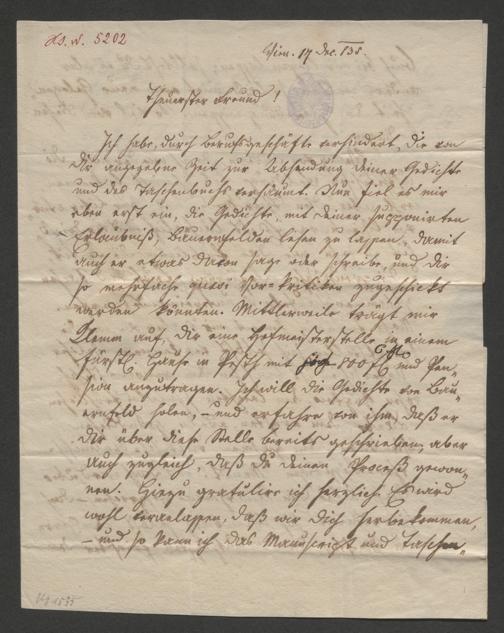 Hs. N. 5202
Wien. 17 Dec. 835.
Theuerster Freund!
Ich habe, durch Berufsgeschäfte verhindert, die von
Dir angegebne Zeit zur Absendung deiner Gedichte
und des Taschenbuchs versäumt. Nun fiel es mir
eben erst ein, die Gedichte, mit deiner supponirten
Erlaubniß, Bauernfelden lesen zu lassen, damit
auch er etwas davon sage oder schreibe, und dir
so mehrfache quasi Vor-Kritiken zugeschickt
werden könnten. Mittlerweile trägt mir
Klemm auf, dir eine Hofmeisterstelle in einem
fürstl. Hause in Pesth mit 800 f CM und Pen-
sion anzutragen. Ich will die Gedichte von Bau-
ernfeld holen, – und erfahre von ihm, daß er
dir über diese Stelle bereits geschrieben, aber
auch zugleich, daß du deinen Proceß gewon-
nen. Hiezu gratulire ich herzlich. Es wird
wohl veranlassen, daß wir dich herbekommen,
– und so kann ich das Manuscript und Taschen-